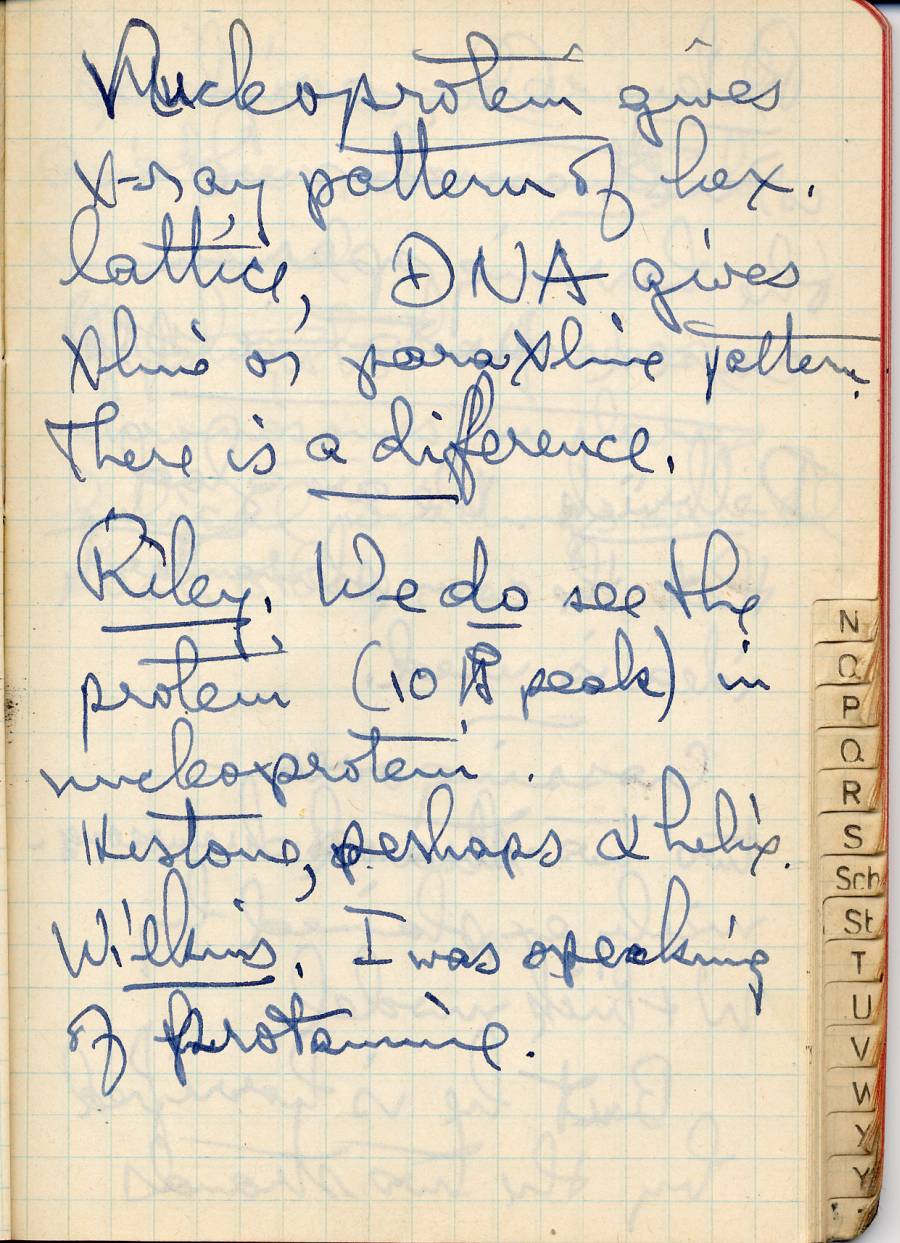 Nucleoprotein gives
X-ray pattern of hex.
lattice, DNA gives
Xline or paraXline pattern.
There is a difference.
Riley. We do see the
protein (10 Å peak) in
nucleoprotein.
Histone, perhaps α helix.
Wilkins. I was speaking
of protamine.
N
O
P
Q
R
S
Sch
St
T
U
V
W
Y
Y